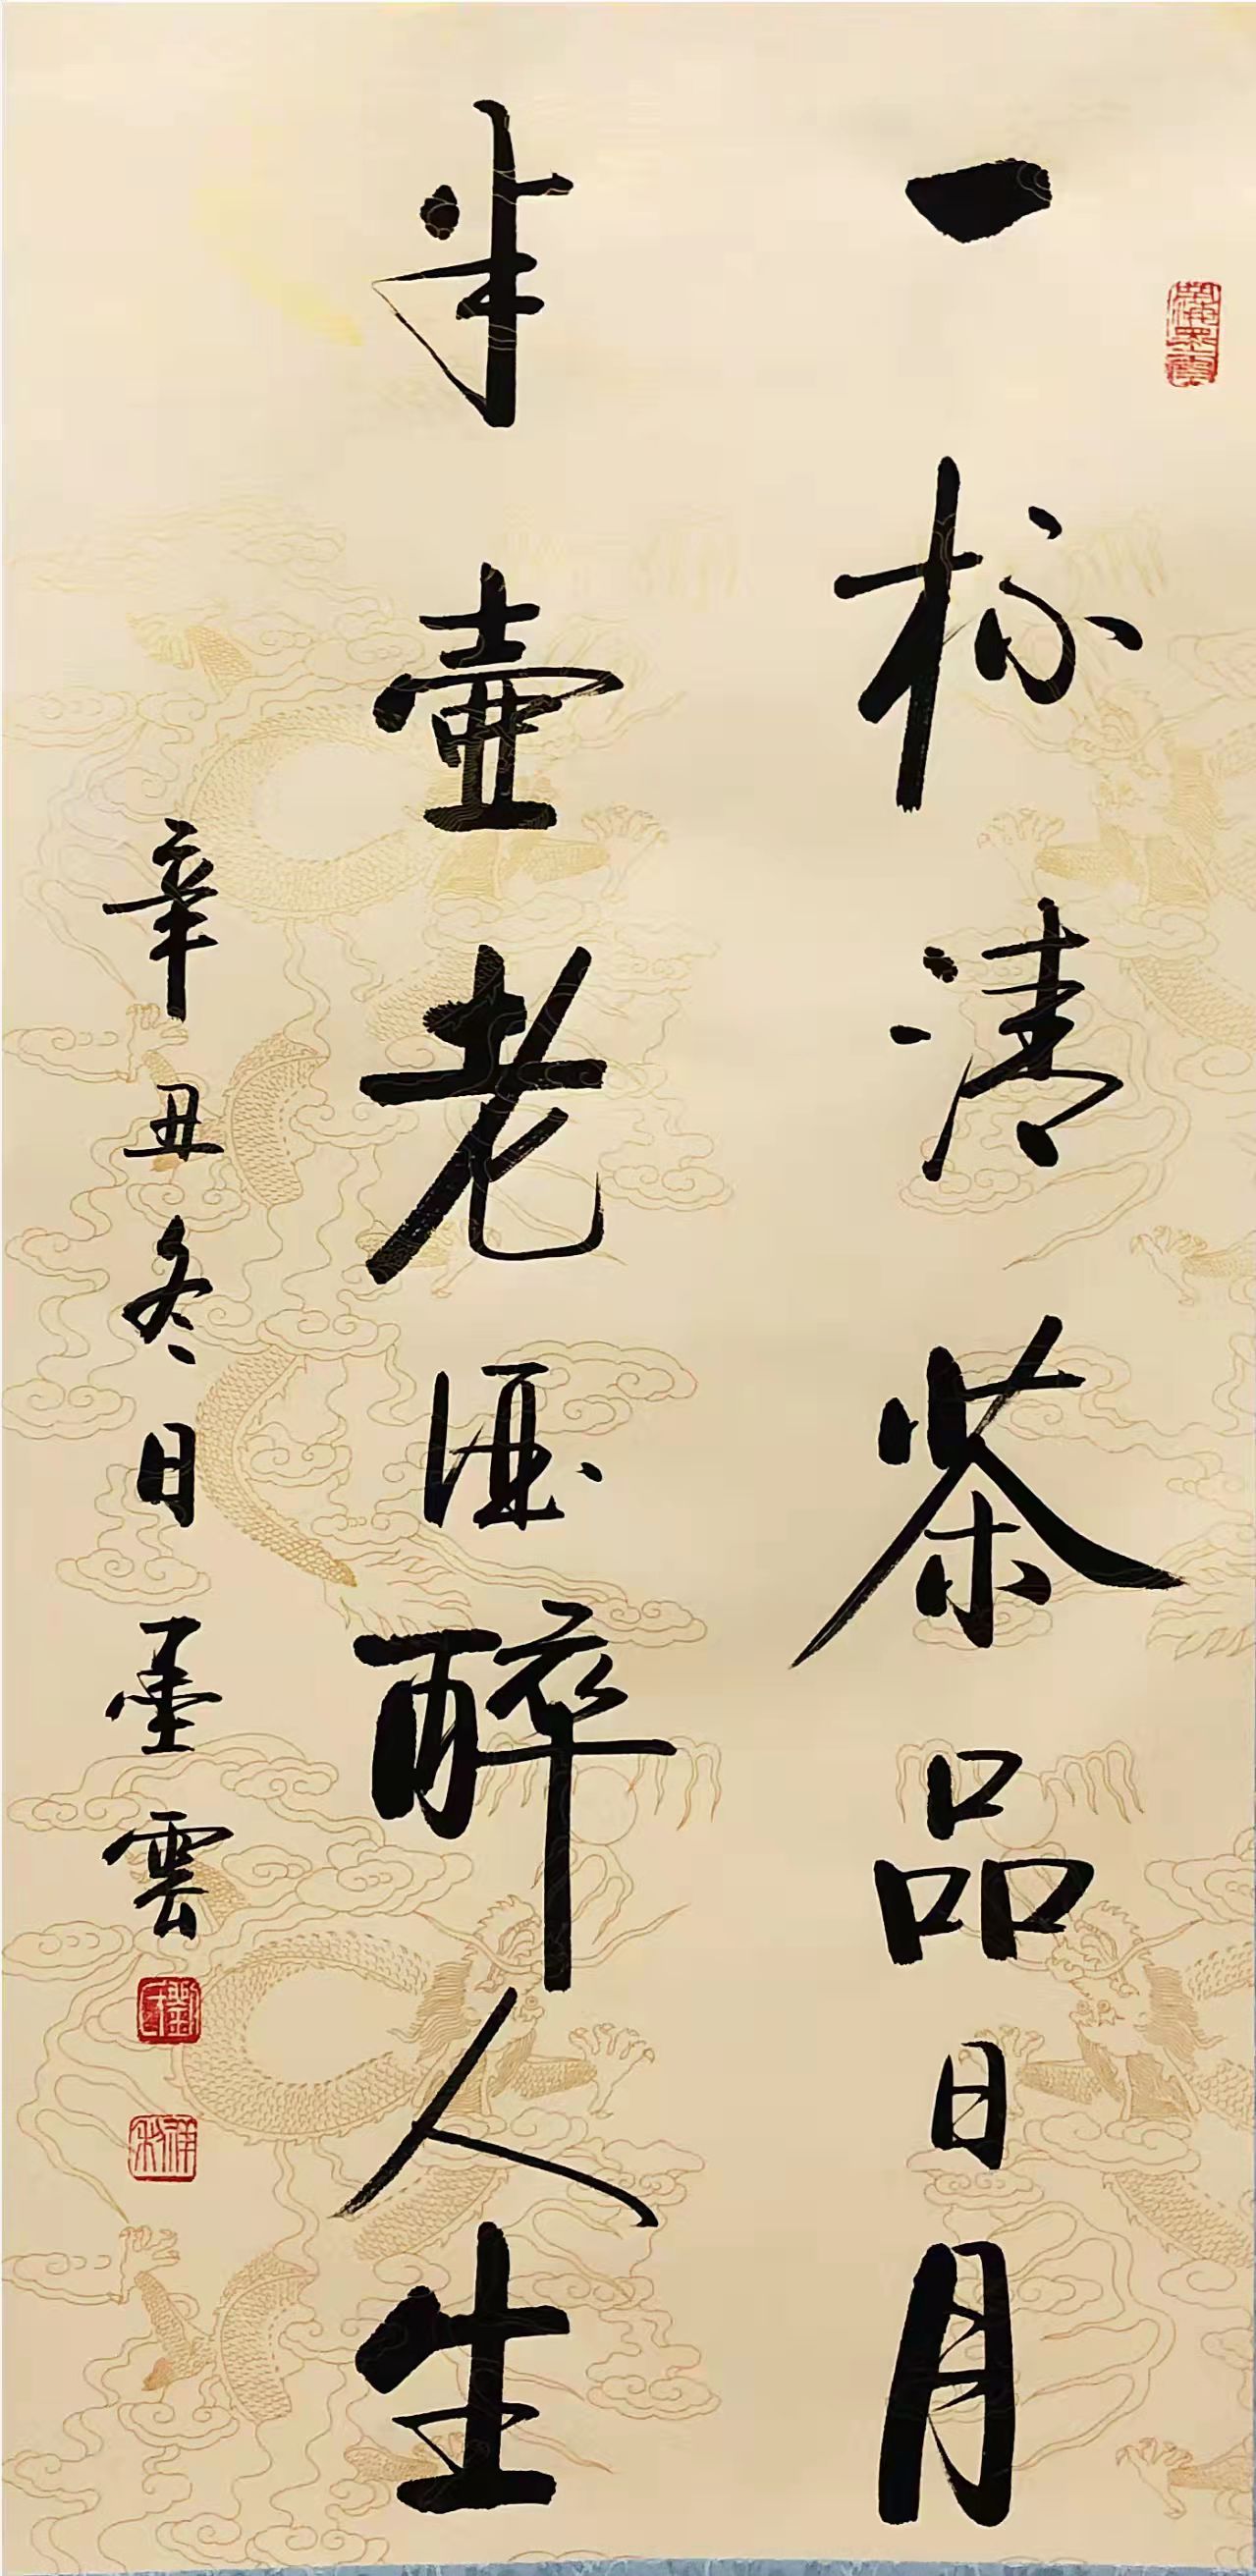 一杯清茶品日月
半壶老酒醉人生
辛丑冬日墨雲